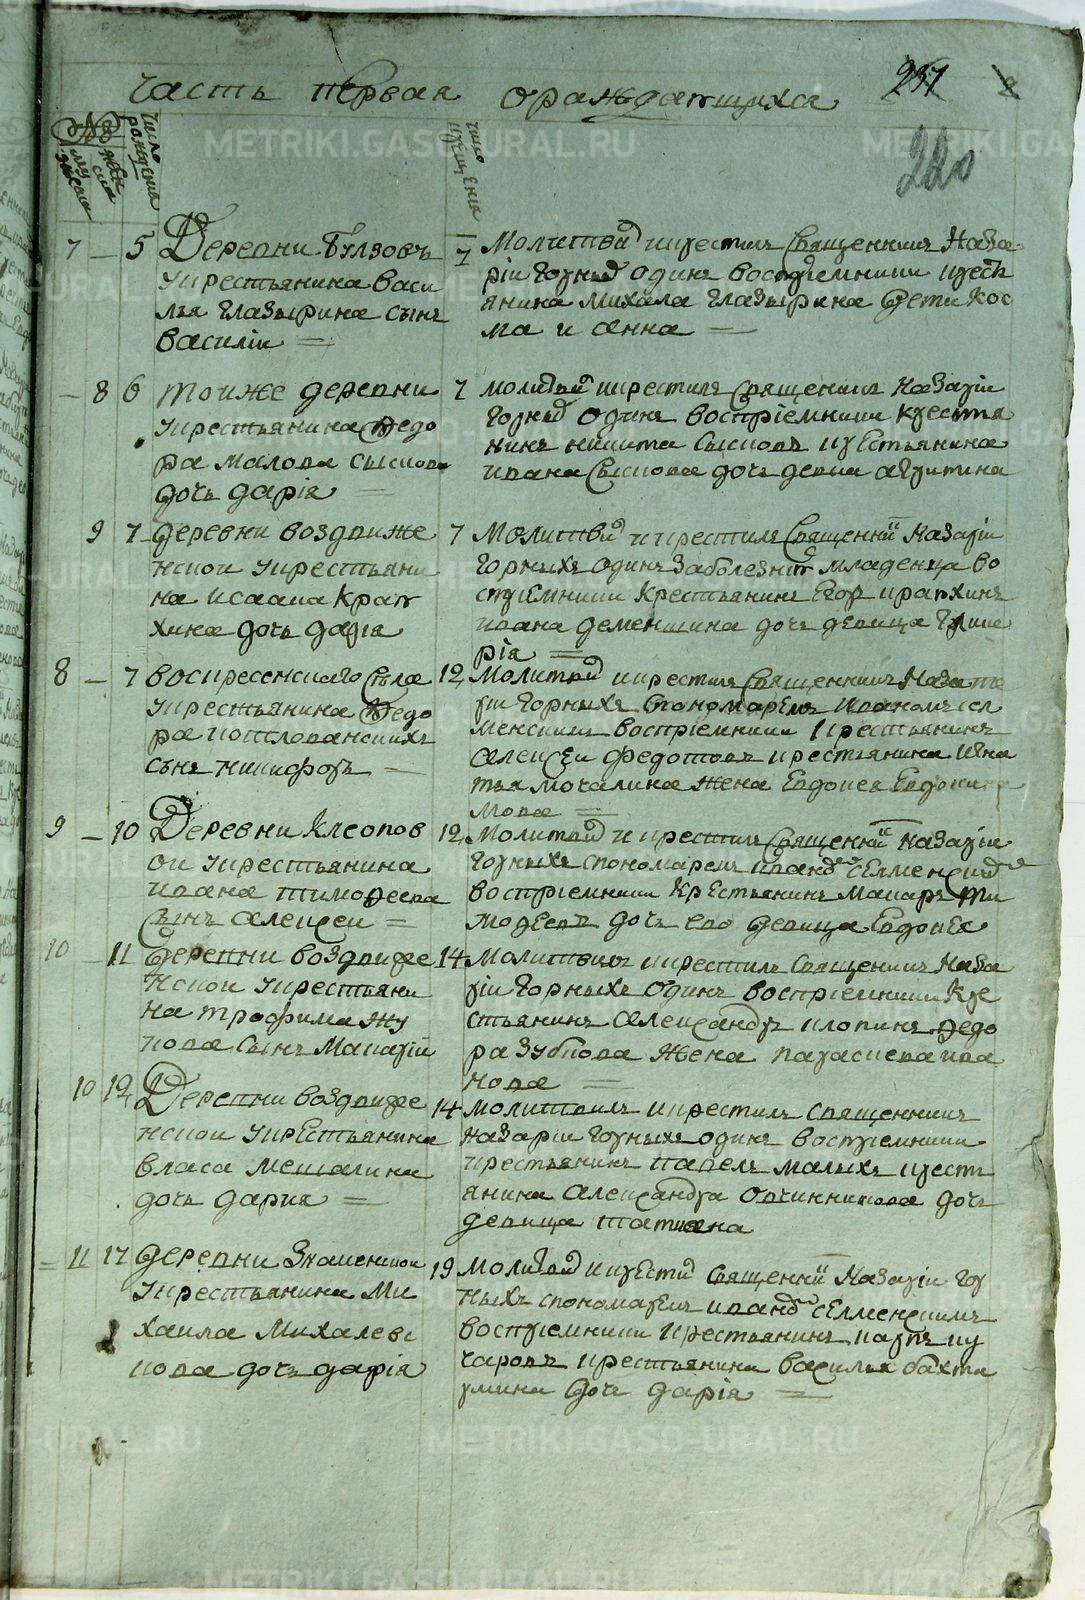 часть первая о раждающихся
237
220
число раждения
число крещения
7 — 5 Деревни Бузовъ
укрестьянина васи
лья глазырина сынъ
василіи
7 Молитвил и крестилъ Священникъ Наза
ріи Горныхъ одинъ восприемники крест
янина михаила глазырина дети кос
ма и анна
— 8 6 тоиже деревни
укрестьянина Федо
ра малова сыскова
дочь дарія
7 молитвил и крестилъ Священникъ Назаріи
Горныхъ одинъ восприемники крестья
нинъ никита Сысковъ крестьянина
ивана Сыскова дочь девица
9 7 деревни воздвиже
нскои укрестьяни
на исаака Крап
хина дочь дарія
7 Молитвил и крестилъ Священникъ Назаріи
Горныхъ одинъ младенца во
сприемники Крестьянинъ Егор крапхинъ
ивана деменшина дочь девица Глике
рія
8 — 7 воскресенскаго Села
укрестьянина Федо
ра
сынъ никифоръ
12 Молитвил и крестилъ Священникъ Наза
ріи Горныхъ спономаремъ Иваномъ сел
менскимъ восприемники крестьянинъ
алексеи федотовъ крестьянина Игна
тья мочалина жена Евдокея
мова
9 — 10 Деревни Клеопов
ои укрестьянина
ивана тимофеева
Сынъ алексеи
12 Молитвил и крестилъ Священникъ назаріи
Горныхъ спономаремъ иваномъ селменскимъ
восприемники Крестьянинъ макаръ ти
мофеевъ дочь ево девица Евдокея
10 — 11 деревни воздвиже
нскои укрестьяни
на трофима жу
кова Сынъ Макаріи
14 Молитвилъ и крестилъ священникъ наза
ріи Горныхъ одинъ восприемники Кре
стьянинъ александръ клопинъ федо
ра зубкова жена параскева ива
нова
10 12 Деревни воздвиже
нскои укрестьянина
власа мешалкина
дочь дария
14 молитвилъ и крестилъ священникъ
назаріи Горныхъ одинъ восприемники
крестьянинъ павелъ малыхъ крест
янина александра овчинникова дочь
девица татиана
— 11 17 деревни Знаменскои
укрестьянина Ми
хаила Михалевс
кова дочь дарія
19 Молитвил и крестил священникъ Назаріи Гор
ныхъ спономаремъ иваномъ селменскимъ
восприемники крестьянинъ карпъ ку
чаровъ крестьянина василья бахта
рмина дочь дарія